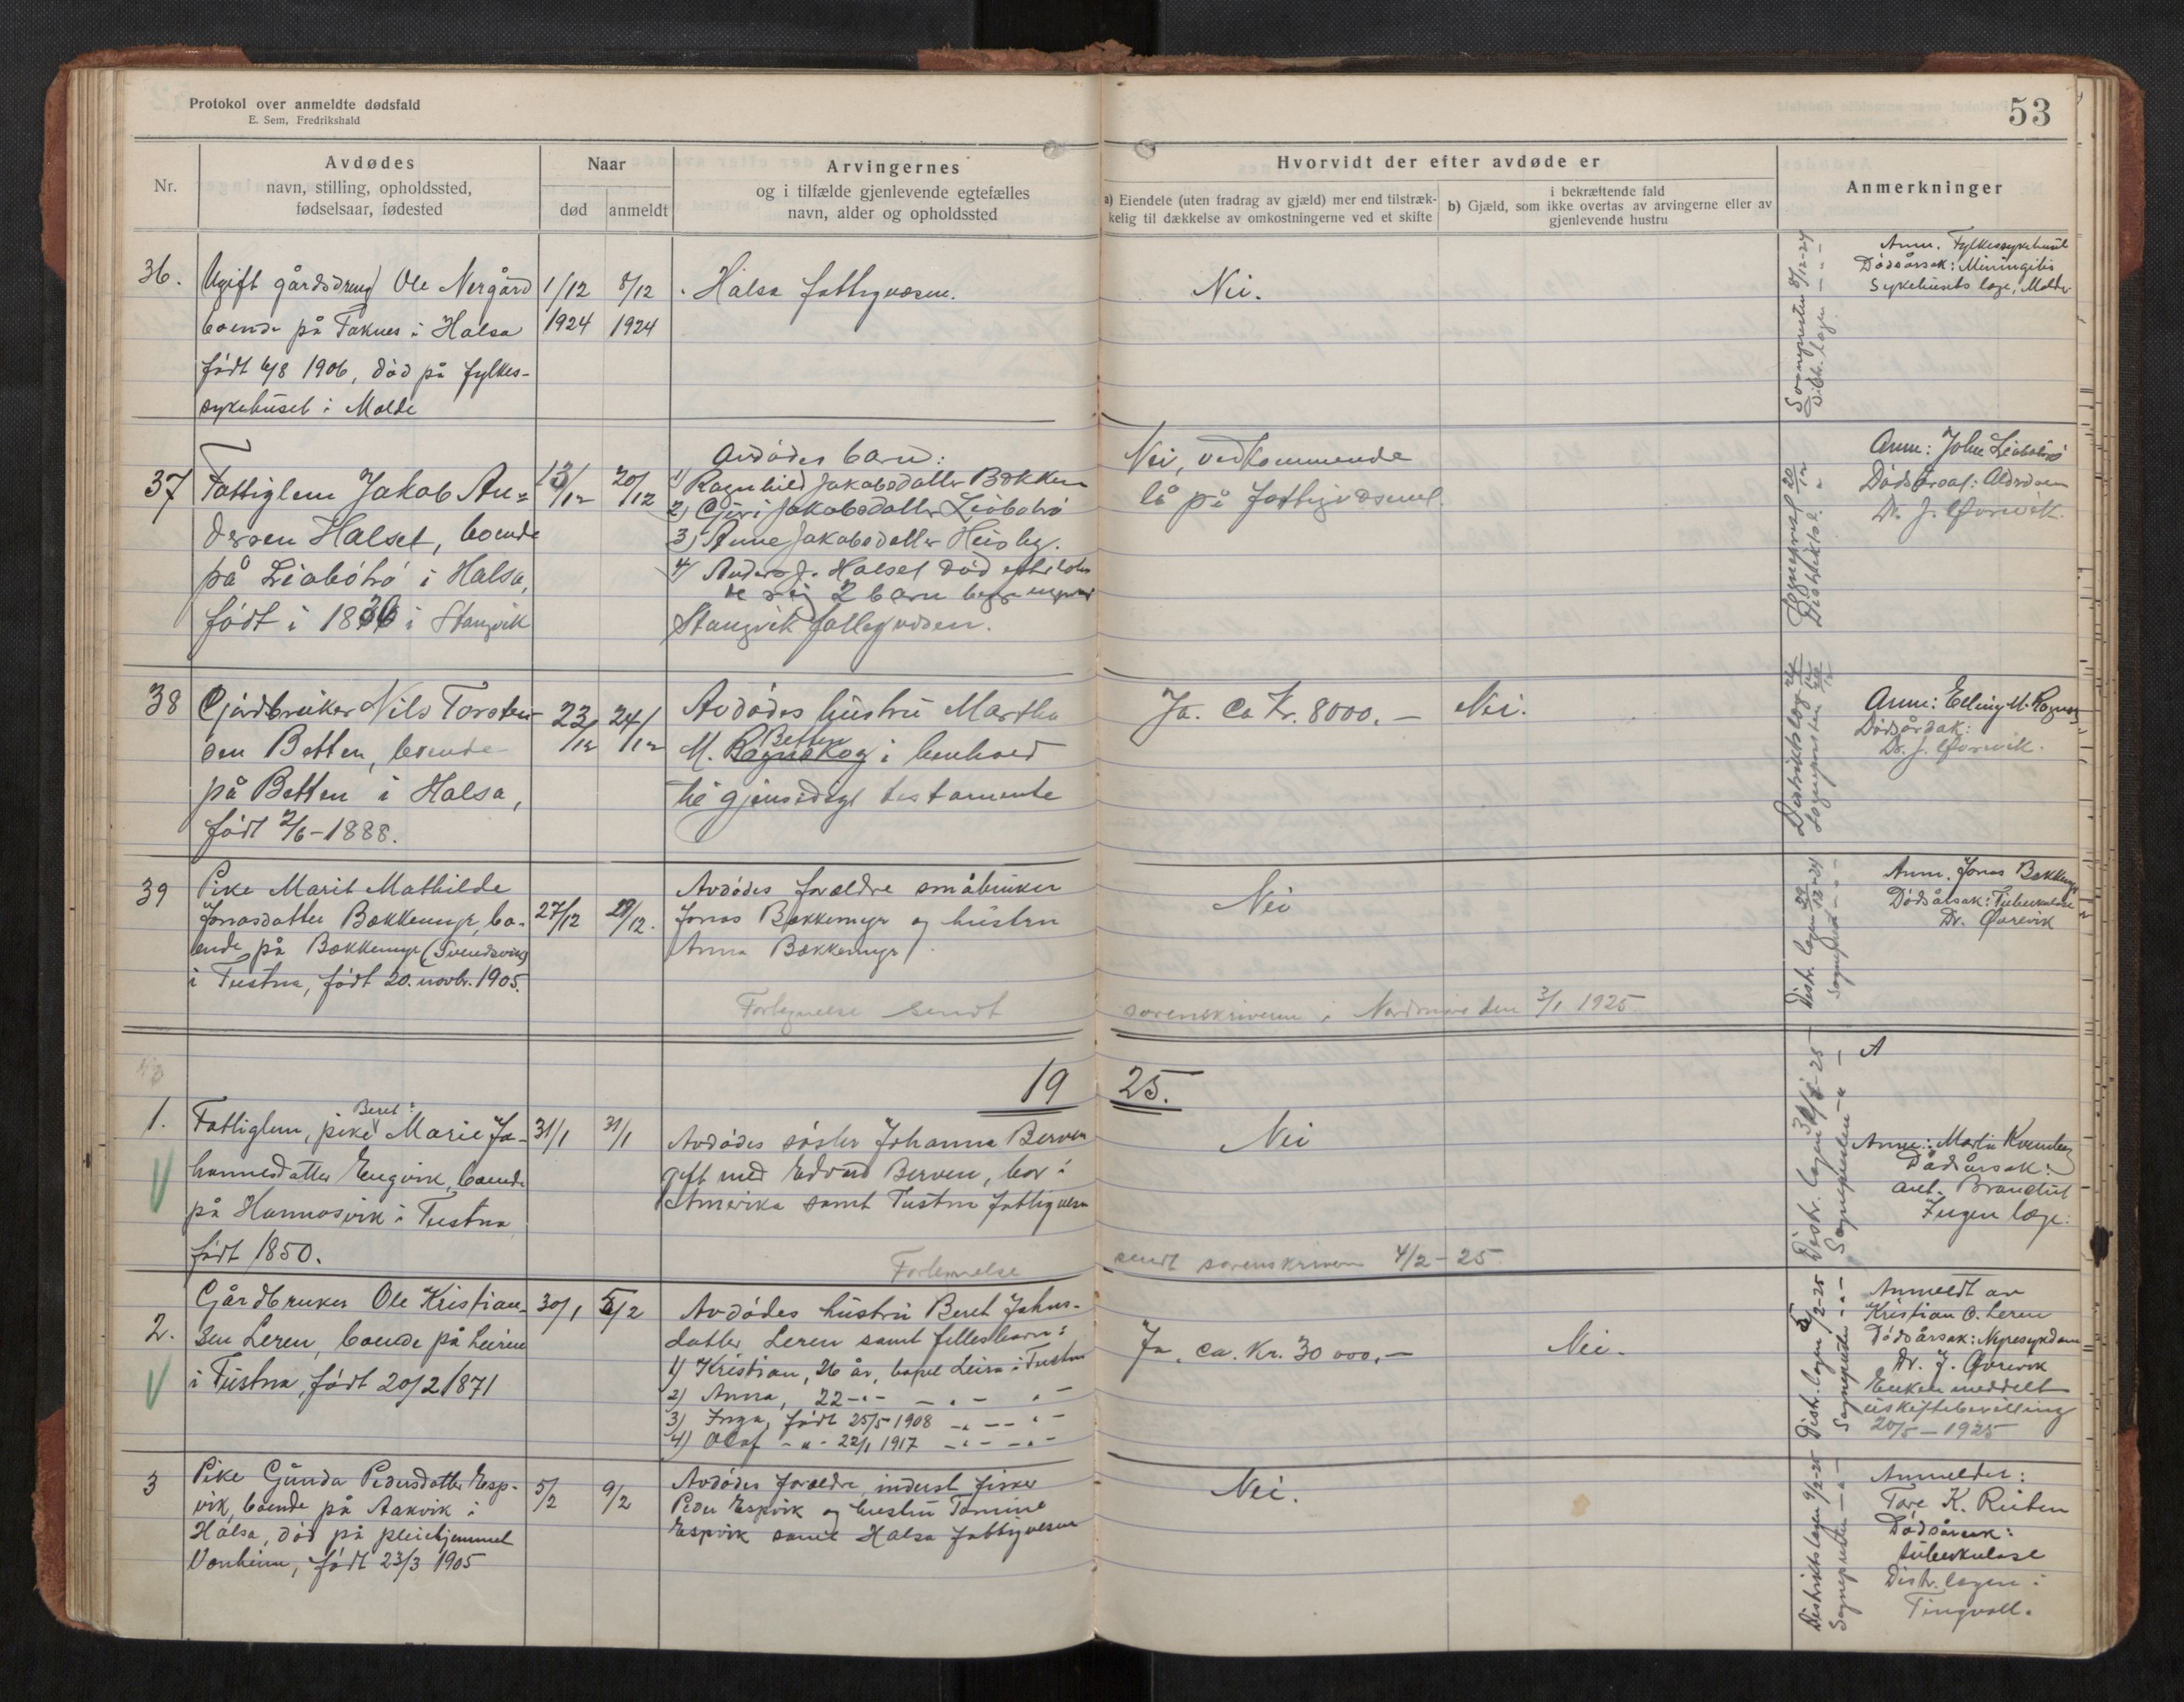 Protokol over anmeldte dødsfald
E. Sem, Fredrikshald
53
Nr.
Avdødes
navn, stilling, opholdssted,
fødselsaar, fødested
Naar
død
anmeldt
Arvingernes
og i tilfælde gjenlevende egtefælles
navn, alder og opholdssted
Hvorvidt der efter avdøde er
a) Eiendele (uten fradrag av gjæld) mer end tilstræk-
kelig til dækkelse av omkostningerne ved et skifte
i bekræftende fald
b) Gjæld, som ikke overtas av arvingerne eller av
gjenlevende hustru
Anmerkninger
36.
Ugift gårdsdreng Ole Nergård
boende på Taknes i Halsa
født 6/8 1906, død på fylkes-
sykehuset i Molde
1/12
1924
8/12
1924
Halsa fattigvæsen.
Nei.
Sogneprester 8/12-24
Distr. lægen - " -
Anm. Fylkessykehuset
Dødsårsak: Miningitis
Sykehusets læge, Molde
37
Fattiglem Jakob An-
dersen Halset, boende
på Liabø i Halsa,
født i 1836 i Stangvik
13/12
20/12
Avdødes barn:
1) Ragnhild Jakobsdatter Bækken
2) Guri Jakobsdatter
3) Anne Jakobsdatter
4) Anders J. Halset død
2 barn
Stangvik fattigvæsen.
Nei, vedkommende
lå på fattigvæsenet.
Sogneprest 20/12
Distriktsl. "
Anm: John
Dødsårsak: Alderdom
Dr. J. Øvrevik.
38
Gårdbruker Nils Torsten-
sen Betten, boende
på Betten i Halsa,
født 2/6-1888.
23/12
24/12
Avdødes hustru Martha
Betten
M. Rognskog i henhold
til gjensidigt testamente
Ja. Ca Kr. 8000.-
Nei.
Distriktslæg 24/12
Sognepresten
Anm: Elling M. Rognskog
Dødsårsak:
Dr. J. Øvrevik.
39
Pike Marit Mathilde
Jonasdatter Bækkemyr, bo-
ende på Bækkemyr (Svendsvik)
i Tustna, født 20. novbr. 1905.
27/12
29/12.
Avdødes forældre småbruker
Jonas Bækkemyr og hustru
Anna Bækkemyr
Nei
Distr. lægen 29/12-24
Sogneprest - " -
Anm. Jonas Bækkemyr
Dødsårsak: Tuberkulose
Dr. Øvrevik
Fortegnelse sendt sorenskriveren i Nordmøre den 3/1 1925.
1925.
A
1.
Beret
Fattiglem, pike Marie Jo-
hannesdatter Engvik, boende
på Hamnasvik i Tustna
født 1850.
31/1
31/1
Avdødes søster Johanna Berven
gift med Edvard Berven, bor i
Amerika samt Tustna fattigvæsen
Nei
Distr. lægen 31/1-25
Sognepresten - " -
Anm: Martin
Dødsårsak:
ant. Brandsut
Ingen læge.
Fortegnelse sendt sorenskriveren 4/2-25.
2.
Gårdbruker Ole Kristian-
sen Leren, boende på Leiren
i Tustna, født 20/2 1871
30/1
5/2
Avdødes hustru Beret Johns-
datter Leren samt fellesbarn:
1) Kristian, 26 år, bopel Leira i Tustna
2) Anna, 22 -"- -"- "-
3) Inga, født 25/5 1908 -"- -"-
4) Olaf -"- 22/1 1917 -"- -"-
Ja, ca. Kr. 30 000,-
Nei.
Distr. lægen 5/2-25
Sognepresten - " -
Anmeldt av
Kristian O. Leren
Dødsårsak: Nyresykdom
Dr. J. Øvrevik
Enken meddelt
uskiftebevilling
20/5-1925
3
Pike Gunda Pedersdatter Esp-
vik, boende på Aakvik i
Halsa, død på pleiehjemmet
Vonheim, født 23/3 1905
5/2
9/2
Avdødes forældre, inderst fisker
Peder Espvik og hustru Tomine
Espvik samt Halsa fattigvesen
Nei.
Distriktslægen 9/2-25
Sognepresten - " -
Anmelder:
Tore K. Ruten
Dødsårsak:
tuberkulose
Distr. lægen i
Tingvoll.